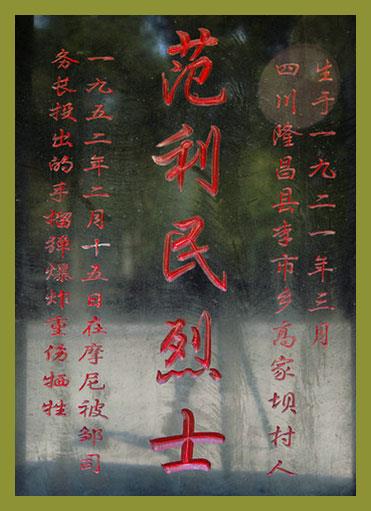 生于一九二一年三月
四川隆昌县李市乡高家坝村人
范利民烈士
一九五二年二月十五日在摩尼被邹司
务长投出的手榴弹爆炸重伤牺牲